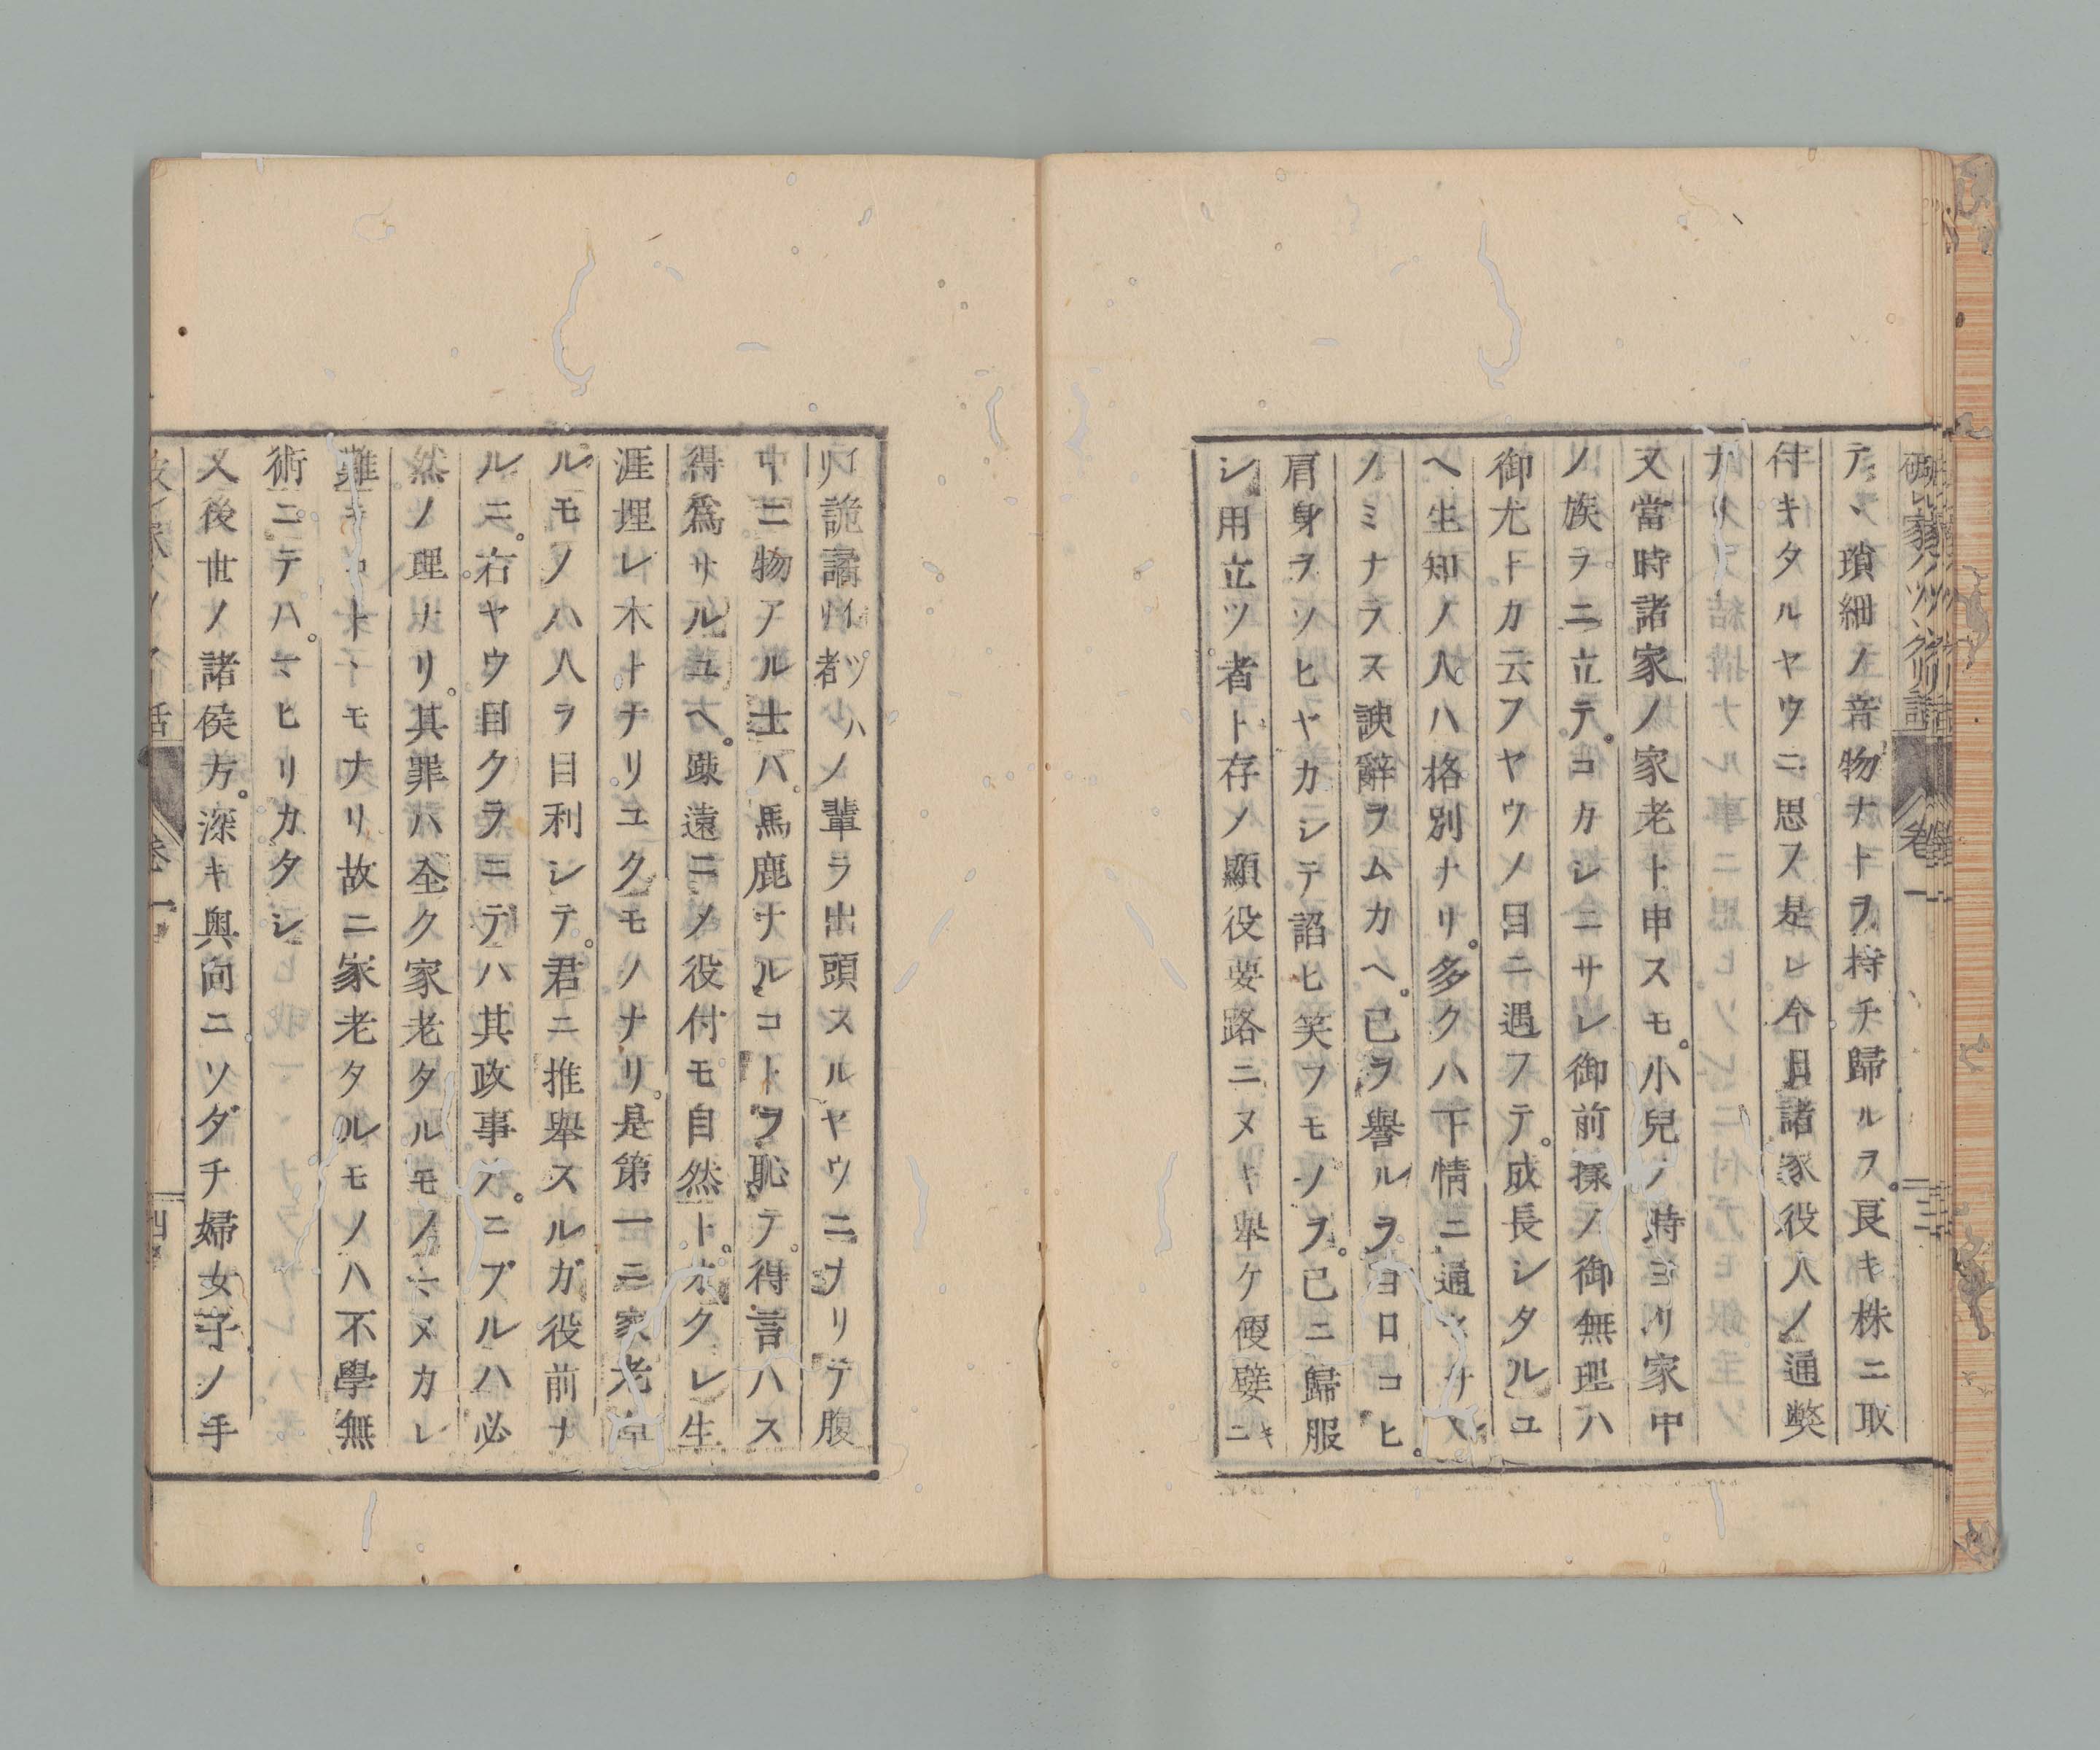 テヽ瑣細ノ音物ナトヲ持チ歸ルヲ。良キ株ニ取
付キタルヤウニ思フ是レ今日諸家役人ノ通弊
ナリ
又當時諸家ノ家老ト申スモ。小兒ノ時ヨリ家中
ノ族ヲニ立テ。コカシニサレ御前樣ノ御無理ハ
御尤トカ云フヤウノ目ニ遇フテ。成長シタルユ
ヘ生知ノ人ハ格別ナリ。多クハ下情ニ通セサス
ノミナラス諛辭ヲムカヘ。已ヲ譽ルヲヨロコヒ。
肩身ヲソヒヤカシテ諂ヒ笑フモノヲ。已ニ歸服
シ用立ツ者ト存ノ顯役要路ニヌキ舉ケ便嬖ニ
詭譎 者ノ輩ラ出頭スルヤウニナリテ腹
中ニ物アル士ハ。馬鹿ナルコトヲ恥テ。得言ハス
得爲サルユヘ。疎遠ニメ役付モ自然ト。オクレ生
涯埋レ木トナリユクモノナリ。是第一ニ家老
ルモノハ人ヲ目利シテ。君ニ推舉スルガ役前ナ
ルニ。右ヤウ目クラニテハ其政事ノ。ニブルハ必
然ノ理ナリ。其罪ハ全ク家老タルモノヽマヌカレ
難キコトヽモナリ故ニ家老タルモノハ不學無
術ニテハ。マヒリカタシ
又後世ノ諸侯方。深キ奥向ニソダチ婦女子ノ手
卷一
三
卷一
四